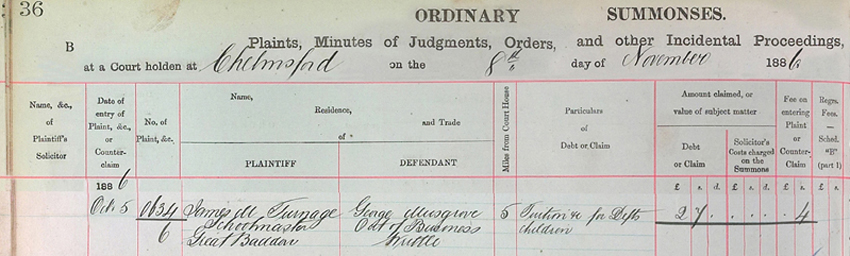 36
ORDINARY SUMMONSES.
B Plaints, Minutes of Judgments, Orders, and other Incidental Proceedings,
at a Court holden at Chelmsford on the 8th day of November 1886
Name, &c., of Plaintiff's Solicitor
Date of entry of Plaint, &c., or Counter-claim
No. of Plaint, &c.
Name, Residence, and Trade of
PLAINTIFF
DEFENDANT
Miles from Court House
Particulars of Debt or Claim
Amount claimed, or value of subject matter
Debt or Claim
Solicitor's Costs charged on the Summons
Fee on entering Plaint or Counter-Claim
Regrs. Fees. — Sched. "B" (part 1)
£ s. d. £ s. d. £ s. £ s.
1886
Oct. 5 James M Turnage George Musgrove 5 Tuition &c for Defts 2 7 . . . . 4
Schoolmaster Out of Business children
6 Great Baddow Writtle